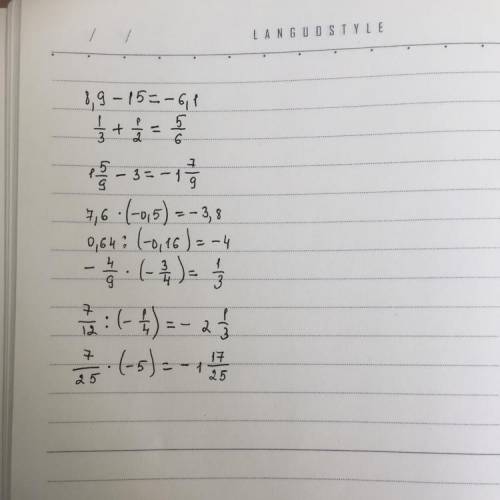 / / LANGUOSTYLE
8,9 - 15 = -6,1
1/3 + 1/2 = 5/6
1 5/9 - 3 = -1 7/9
7,6 · (-0,5) = -3,8
0,64 : (-0,16) = -4
- 4/9 · (- 3/4) = 1/3
7/12 : (- 1/4) = - 2 1/3
7/25 · (-5) = - 1 17/25